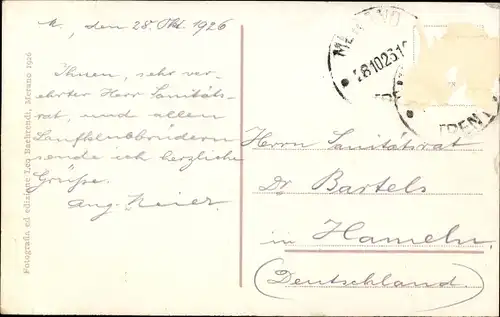 M., den 28. Okt. 1926
Ihnen, sehr ver-
ehrter Herr Sanitäts-
rat, und allen
Laufklubbrüdern
sende ich herzliche
Grüße.
Aug. Meier.
MERANO
28.10.26.1
TRENT
Herrn Sanitätsrat
Dr Bartels
in Hameln,
(Deutschland.)
Fotografia ed edizione Leo Baehrendt, Merano 1926